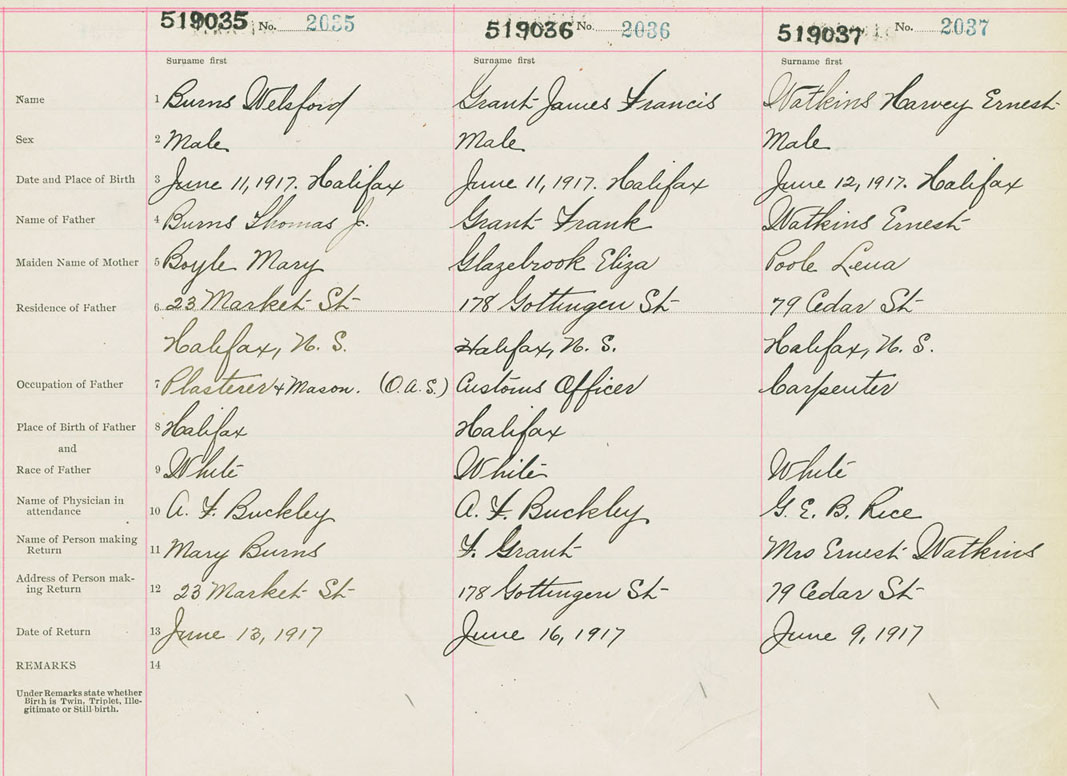 519035 No. 2035 519036 No. 2036 519037 No. 2037
Surname first Surname first Surname first
Name 1 Burns Welsford Grant James Francis Watkins Harvey Ernest
Sex 2 Male Male Male
Date and Place of Birth 3 June 11, 1917. Halifax June 11, 1917. Halifax June 12, 1917. Halifax
Name of Father 4 Burns Thomas J. Grant Frank Watkins Ernest
Maiden Name of Mother 5 Boyle Mary Glazebrook Eliza Poole Lena
Residence of Father 6 23 Market St 178 Gottingen St 79 Cedar St
Halifax, N. S. Halifax, N. S. Halifax, N. S.
Occupation of Father 7 Plasterer + Mason. (O.A.S.) Customs Officer Carpenter
Place of Birth of Father 8 Halifax Halifax
and
Race of Father 9 White White White
Name of Physician in
attendance 10 A. F. Buckley A. F. Buckley G. E. B. Rice
Name of Person making
Return 11 Mary Burns F. Grant Mrs Ernest Watkins
Address of Person mak-
ing Return 12 23 Market St 178 Gottingen St 79 Cedar St
Date of Return 13 June 13, 1917 June 16, 1917 June 9, 1917
REMARKS 14
Under Remarks state whether
Birth is Twin, Triplet, Ille-
gitimate or Still-birth.